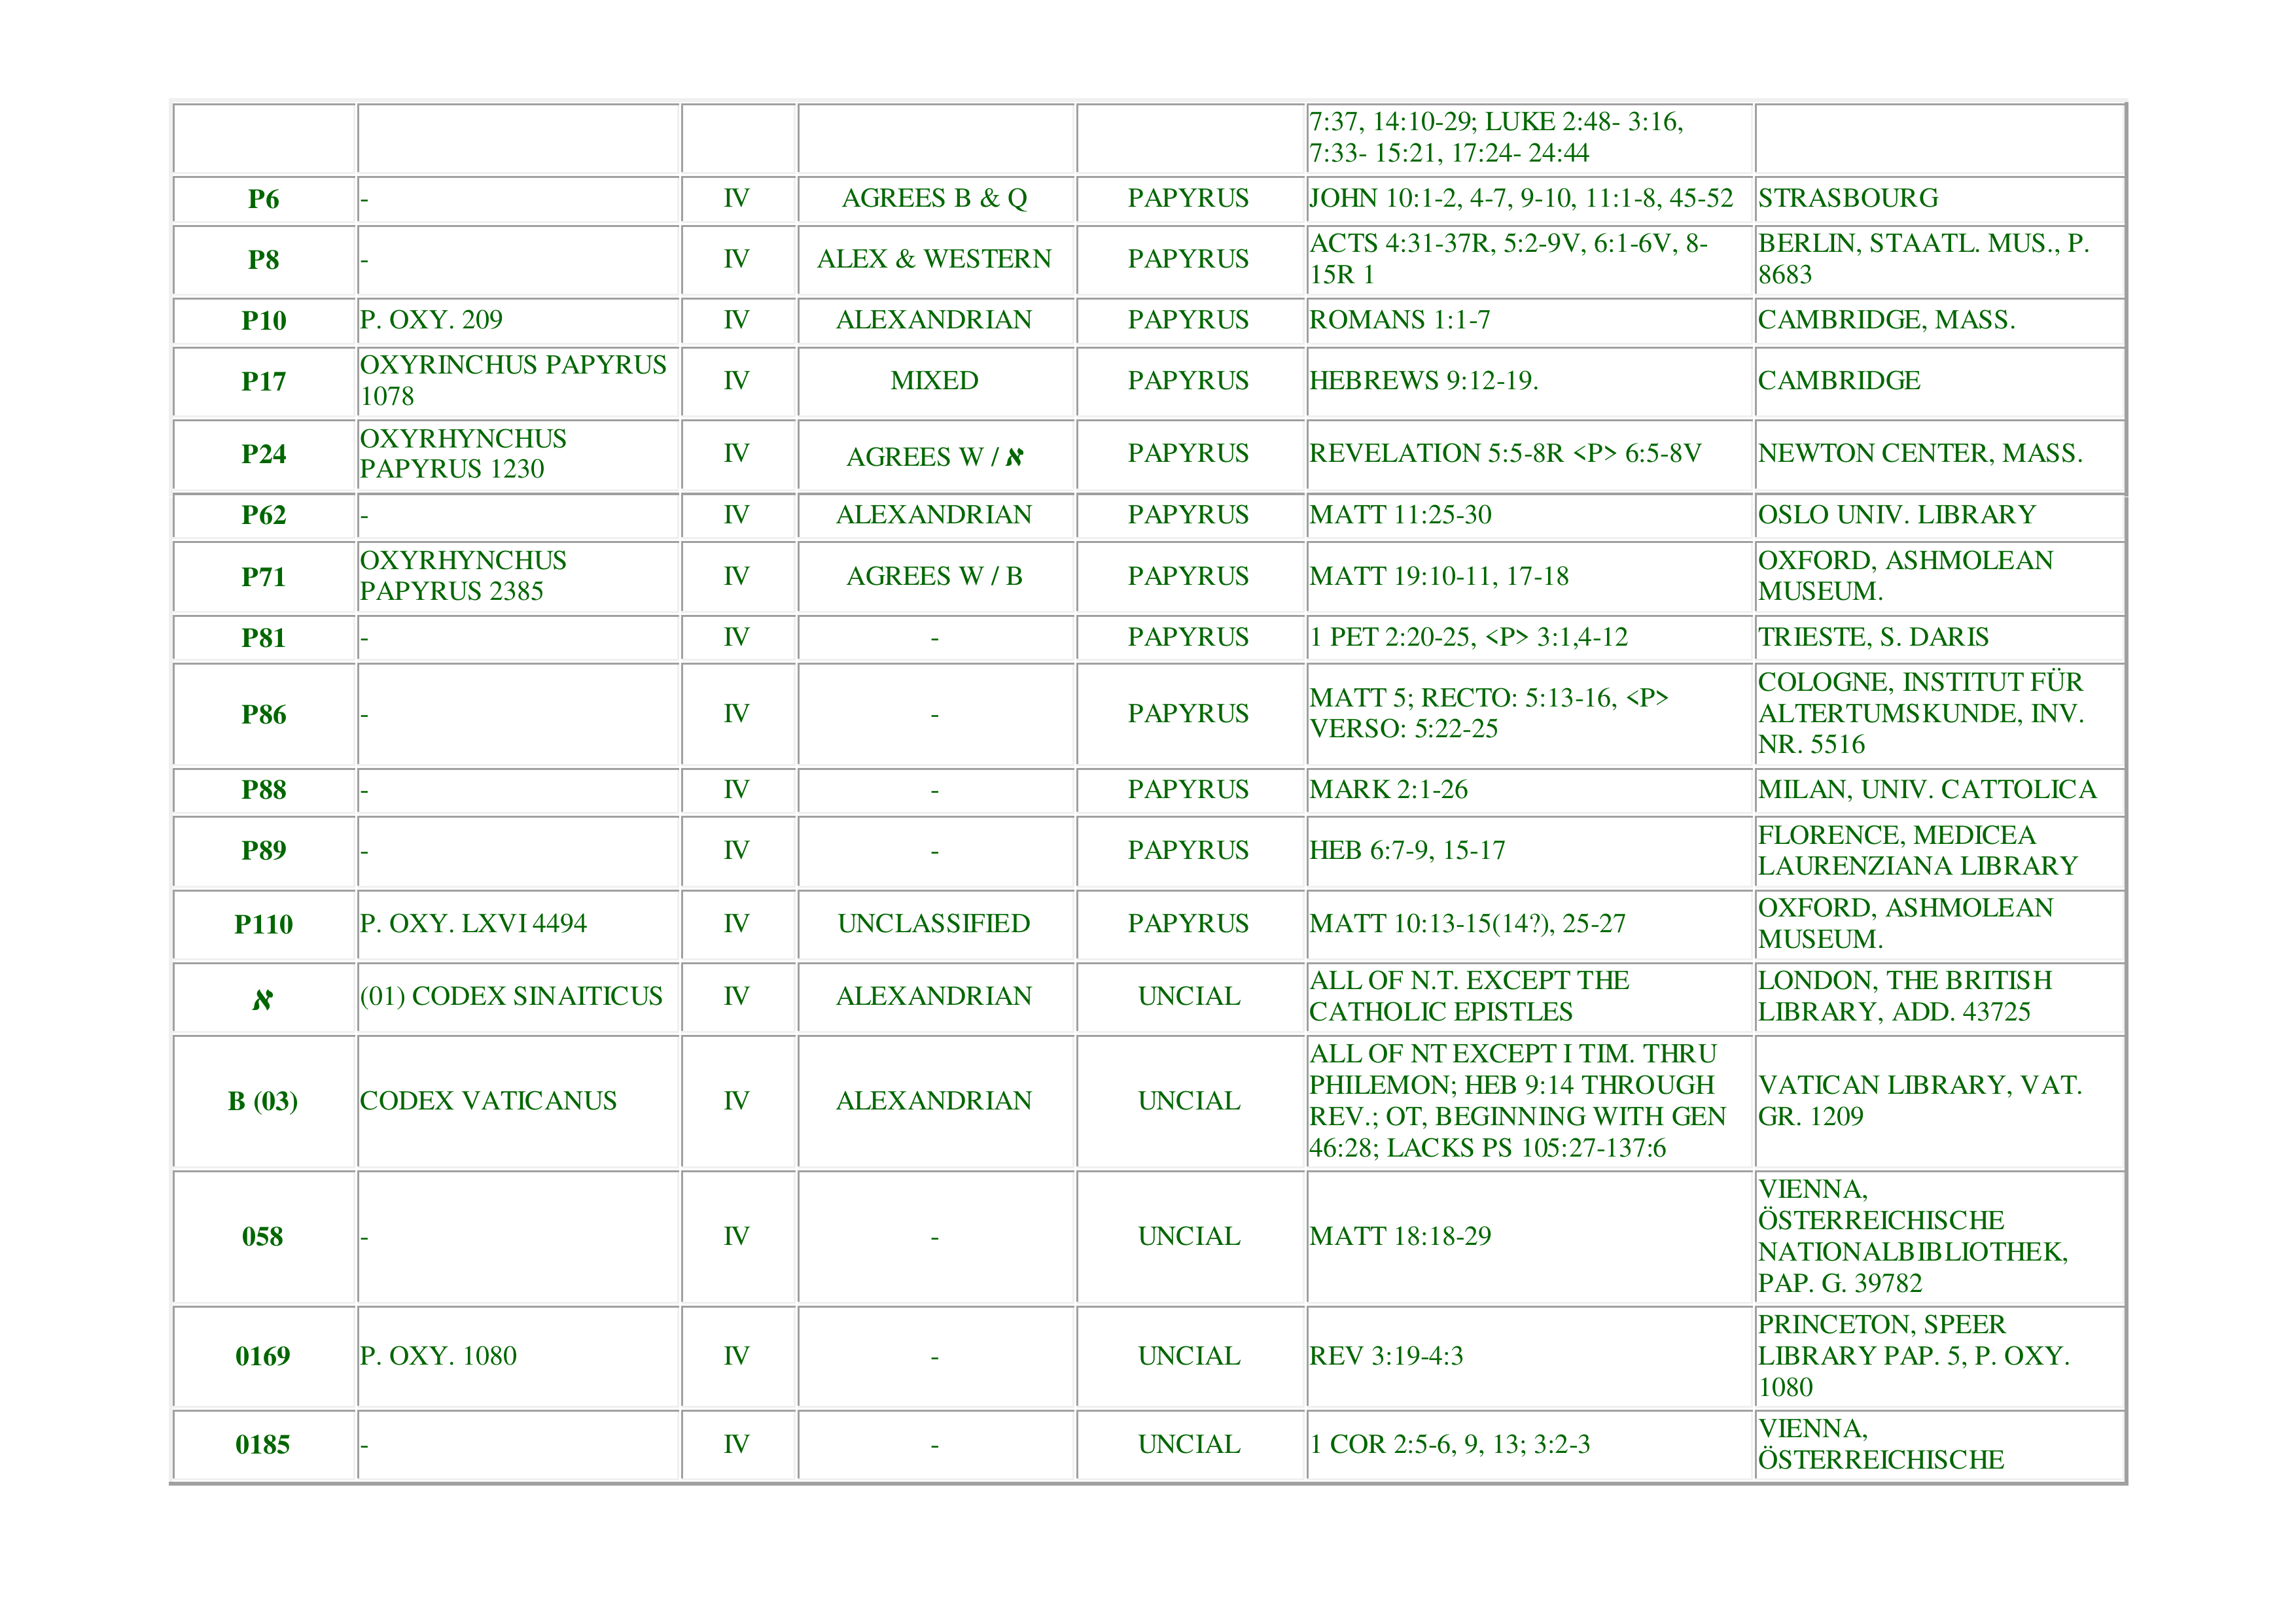 7:37, 14:10-29; LUKE 2:48- 3:16,
7:33- 15:21, 17:24- 24:44
P6 - IV AGREES B & Q PAPYRUS JOHN 10:1-2, 4-7, 9-10, 11:1-8, 45-52 STRASBOURG
P8 - IV ALEX & WESTERN PAPYRUS ACTS 4:31-37R, 5:2-9V, 6:1-6V, 8-
15R 1 BERLIN, STAATL. MUS., P.
8683
P10 P. OXY. 209 IV ALEXANDRIAN PAPYRUS ROMANS 1:1-7 CAMBRIDGE, MASS.
P17 OXYRINCHUS PAPYRUS
1078 IV MIXED PAPYRUS HEBREWS 9:12-19. CAMBRIDGE
P24 OXYRHYNCHUS
PAPYRUS 1230 IV AGREES W / א PAPYRUS REVELATION 5:5-8R <P> 6:5-8V NEWTON CENTER, MASS.
P62 - IV ALEXANDRIAN PAPYRUS MATT 11:25-30 OSLO UNIV. LIBRARY
P71 OXYRHYNCHUS
PAPYRUS 2385 IV AGREES W / B PAPYRUS MATT 19:10-11, 17-18 OXFORD, ASHMOLEAN
MUSEUM.
P81 - IV - PAPYRUS 1 PET 2:20-25, <P> 3:1,4-12 TRIESTE, S. DARIS
P86 - IV - PAPYRUS MATT 5; RECTO: 5:13-16, <P>
VERSO: 5:22-25 COLOGNE, INSTITUT FÜR
ALTERTUMSKUNDE, INV.
NR. 5516
P88 - IV - PAPYRUS MARK 2:1-26 MILAN, UNIV. CATTOLICA
P89 - IV - PAPYRUS HEB 6:7-9, 15-17 FLORENCE, MEDICEA
LAURENZIANA LIBRARY
P110 P. OXY. LXVI 4494 IV UNCLASSIFIED PAPYRUS MATT 10:13-15(14?), 25-27 OXFORD, ASHMOLEAN
MUSEUM.
א (01) CODEX SINAITICUS IV ALEXANDRIAN UNCIAL ALL OF N.T. EXCEPT THE
CATHOLIC EPISTLES LONDON, THE BRITISH
LIBRARY, ADD. 43725
B (03) CODEX VATICANUS IV ALEXANDRIAN UNCIAL ALL OF NT EXCEPT I TIM. THRU
PHILEMON; HEB 9:14 THROUGH
REV.; OT, BEGINNING WITH GEN
46:28; LACKS PS 105:27-137:6 VATICAN LIBRARY, VAT.
GR. 1209
058 - IV - UNCIAL MATT 18:18-29 VIENNA,
ÖSTERREICHISCHE
NATIONALBIBLIOTHEK,
PAP. G. 39782
0169 P. OXY. 1080 IV - UNCIAL REV 3:19-4:3 PRINCETON, SPEER
LIBRARY PAP. 5, P. OXY.
1080
0185 - IV - UNCIAL 1 COR 2:5-6, 9, 13; 3:2-3 VIENNA,
ÖSTERREICHISCHE